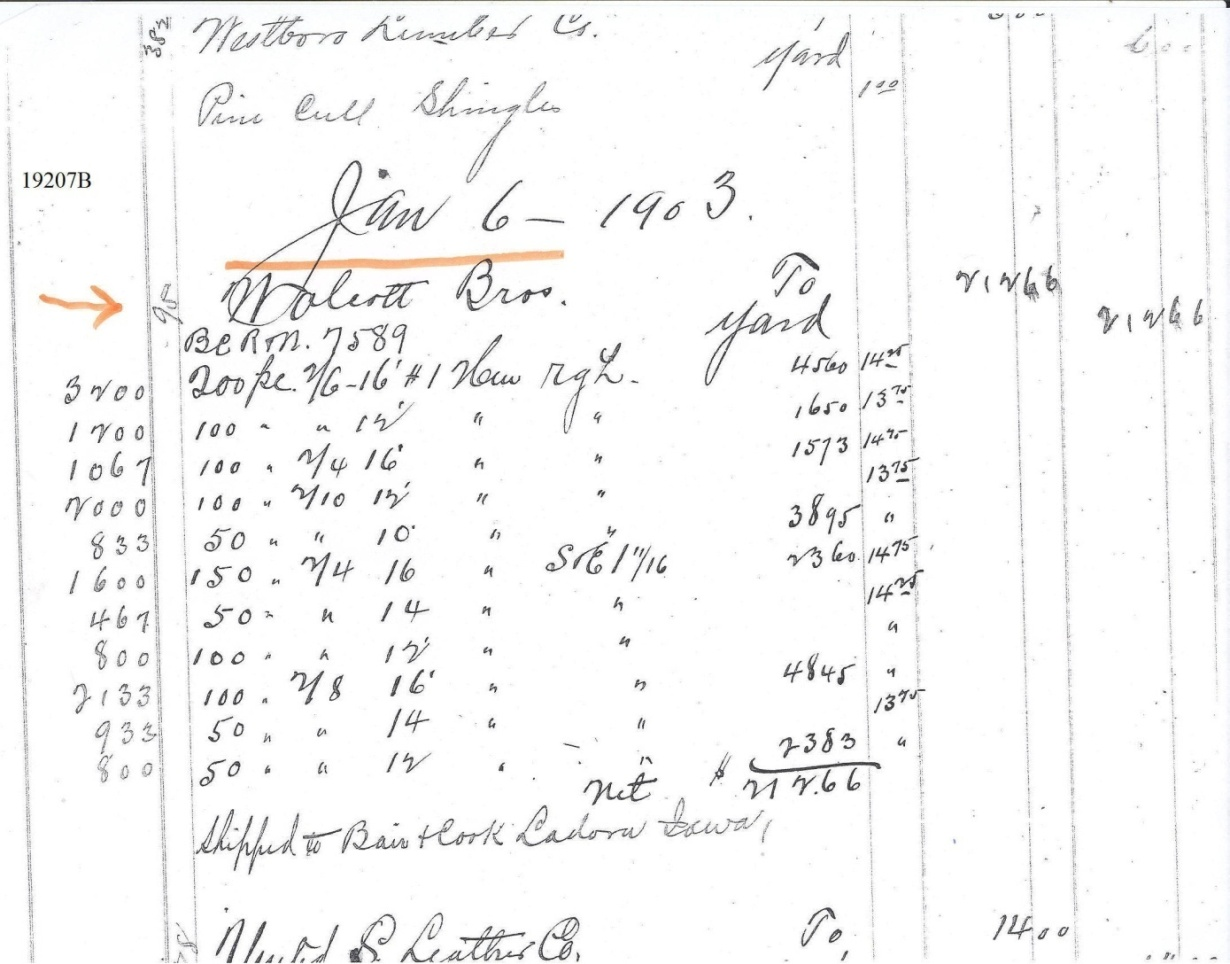 382 Westboro Lumber Co. yard
Pine Cull Shingles 1 00
19207B
Jan 6 - 1903.
95 Wolcott Bros. To yard 21266 21266
BCRM. 7589
3200 200 pc. 2/6-16' #1 Hem rgh. 4560 14 25
1200 100 " " 12' " " 1650 13 75
1067 100 " 2/4 16' " " 1573 14 75
2000 100 " 2/10 12' " " 13 75
833 50 " " 10' " " 3895 "
1600 150 " 2/4 16 " S1E 1 11/16 2360 14 75
467 50 " " 14 " " 14 25
800 100 " " 12' " " "
2133 100 " 2/8 16' " " 4845 "
933 50 " " 14 " " 13 75
800 50 " " 12 " " 2383 "
Net $ 212.66
Shipped to Bair & Cook Ladora Iowa,
United S. Leather Co. To 1400